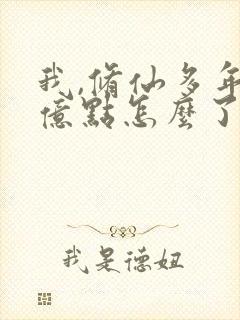 我,脩仙多年
億點怎麼了
我是德姐